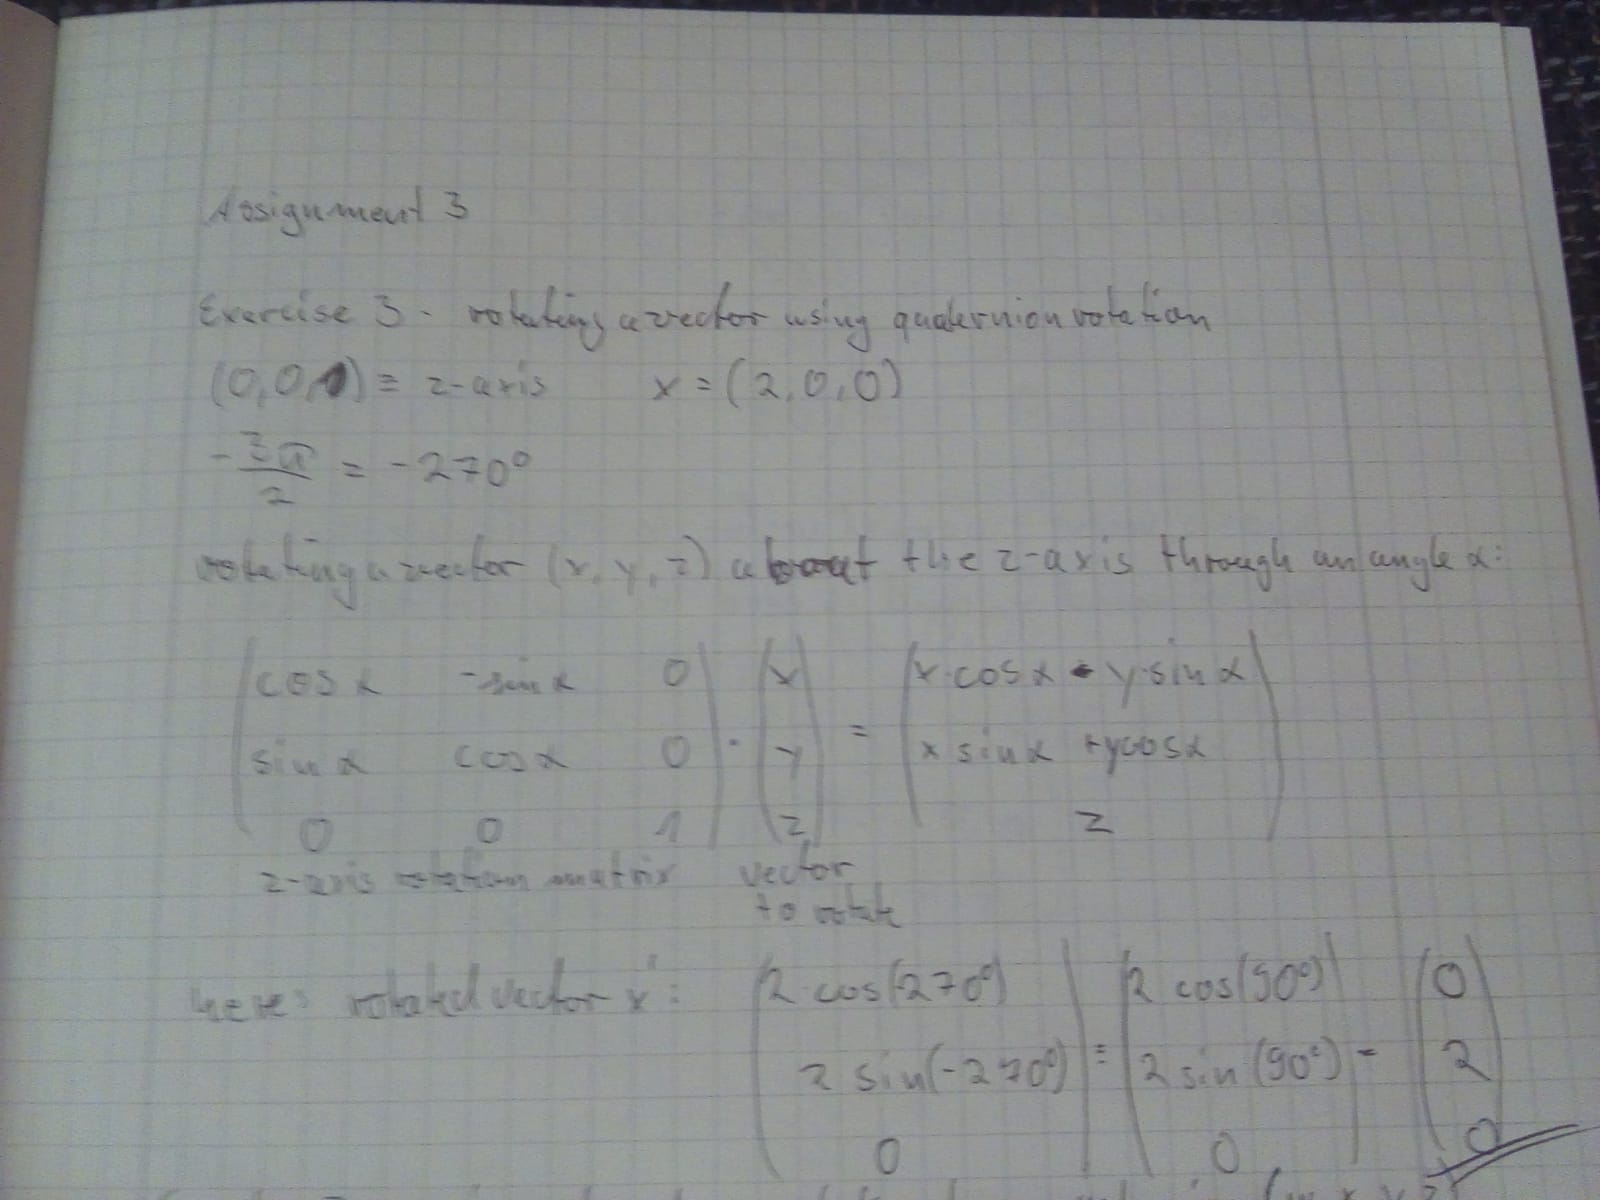 Assignment 3
Exercise 3 - rotating a vector using quaternion rotation
(0,0,1) ≡ z-axis x = (2,0,0)
-3π/2 = -270°
rotating a vector (x, y, z) about the z-axis through an angle α:
cos α -sin α 0 x x·cos α - y·sin α
sin α cos α 0 · y = x sin α + y cos α
0 0 1 z z
z-axis rotation matrix vector
to rotate
here: rotated vector x': 2·cos(-270°) 2 cos(90°) 0
2 sin(-270°) = 2 sin(90°) = 2
0 0 0